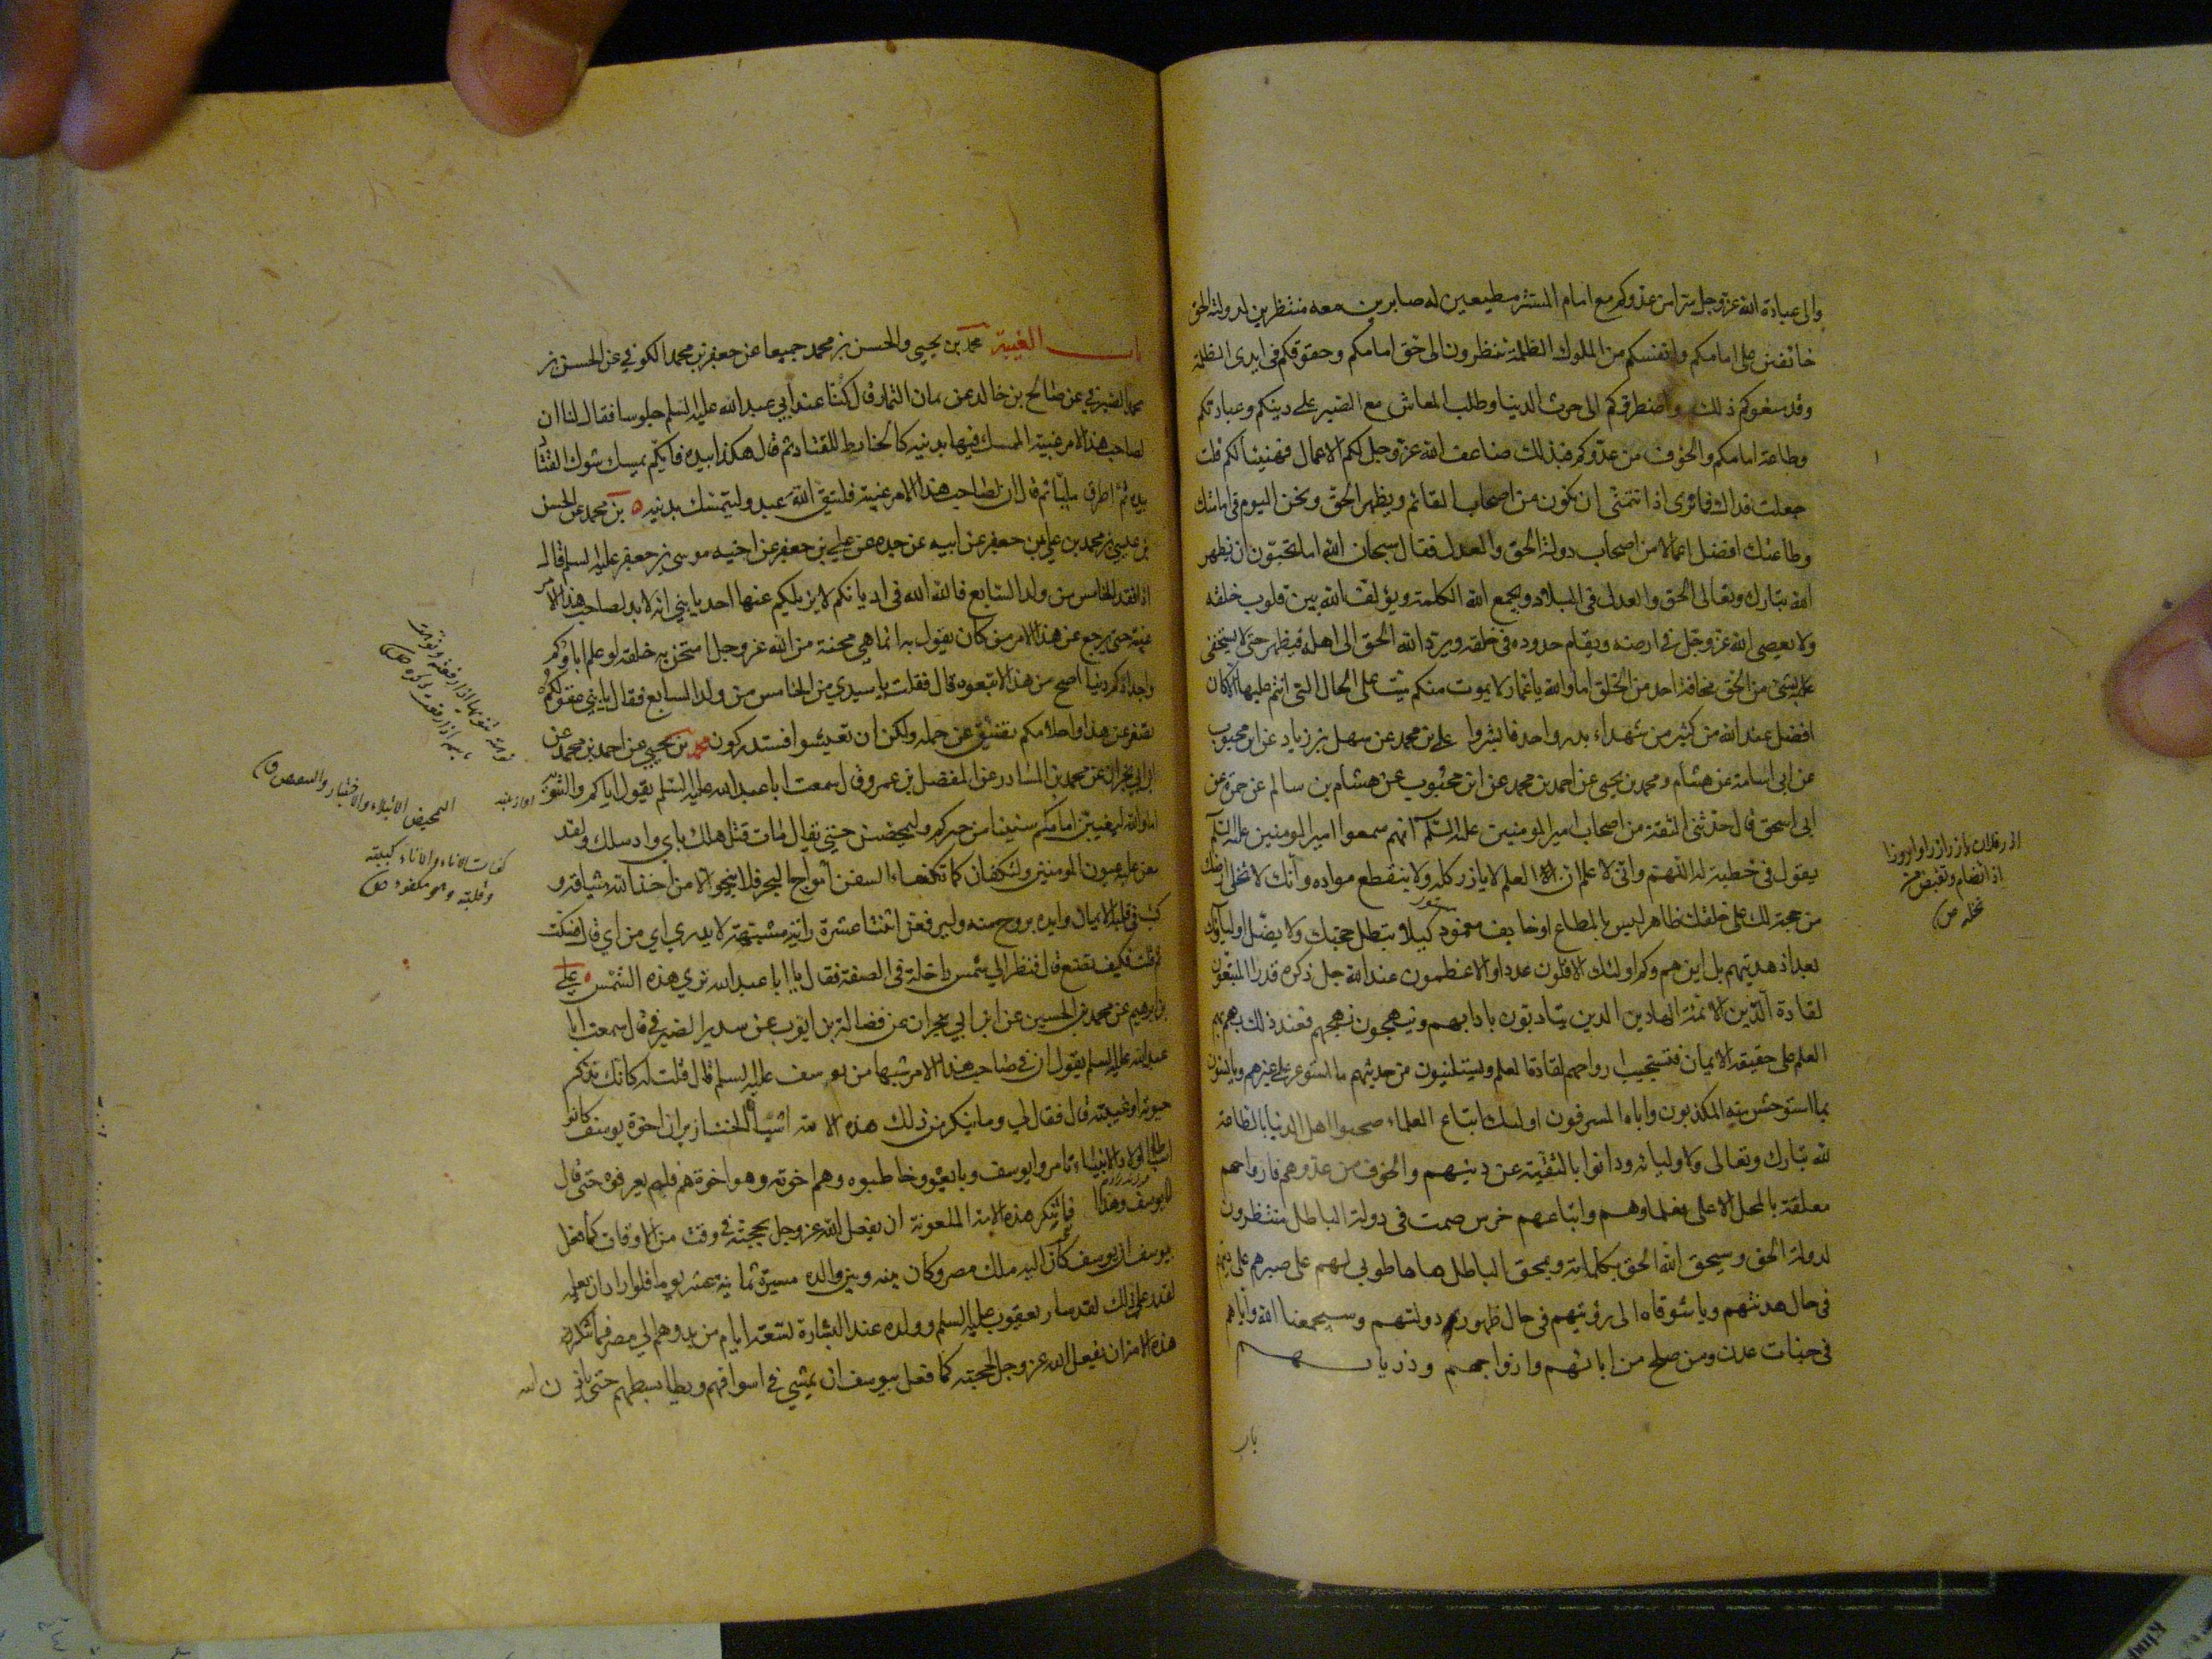 والى عبادة الله عز وجل سرا من عدوكم مع امام المستتر مطيعين له صابرين معه منتظرين لدولة الحق
خائفين على امامكم وانفسكم من الملوك الظلمة تنظرون الى حق امامكم وحقوقكم فى ايدى الظلمة
وقد منعوكم ذلك واضطروكم الى حرث الدنيا وطلب المعاش مع الصبر على دينكم وعبادتكم
وطاعة امامكم والخوف من عدوكم فبذلك ضاعف الله عز وجل لكم الاعمال فهنيئا لكم قلت
جعلت فداك فما ترى اذا نتمنى ان نكون من اصحاب القائم ويظهر الحق ونحن اليوم فى امامتك
وطاعتك افضل اعمالا من اصحاب دولة الحق والعدل فقال سبحان الله اما تحبون ان يظهر
الله تبارك وتعالى الحق والعدل فى البلاد ويجمع الله الكلمة ويؤلف الله بين قلوب خلقه
ولا يعصى الله عز وجل فى ارضه ويقام حدوده فى خلقه ويرد الله الحق الى اهله فيظهر حتى لا يستخفى
بشىء من الحق مخافة احد من الخلق اما والله يا عمار لا يموت منكم ميت على الحال التى انتم عليها الا كان
افضل عند الله من كثير من شهداء بدر واحد فابشروا على بن محمد عن سهل بن زياد عن ابن محبوب
عن ابى اسامة عن هشام ومحمد بن يحيى عن احمد بن محمد عن ابن محبوب عن هشام بن سالم عن حمزة عن
ابى اسحق قال حدثنى الثقة من اصحاب امير المومنين عليه السلم انهم سمعوا امير المومنين عليه السلم
يقول فى خطبة له اللهم وانى لاعلم ان العلم لا يازر كله ولا ينقطع مواده وانك لا تخلى ارضك
من حجة لك على خلقك ظاهر ليس بالمطاع او خايف مغمود كيلا تبطل حججك ولا يضل اولياؤك
بعد اذ هديتهم بل اين هم وكم اولئك الاقلون عددا والاعظمون عند الله جل ذكره قدرا المتبعون
لقادة الدين الائمة الهادين الذين يتادبون بادابهم وينهجون نهجهم فعند ذلك يهجم بهم
العلم على حقيقة الايمان فتستجيب ارواحهم لقادة العلم ويستلينون من حديثهم ما استوعر على غيرهم ويانسون
بما استوحش منه المكذبون واباه المسرفون اولئك اتباع العلماء صحبوا اهل الدنيا بالطاعة
لله تبارك وتعالى ولاوليائه ودانوا بالتقية عن دينهم والخوف من عدوهم فارواحهم
معلقة بالمحل الاعلى فعلماوهم واتباعهم خرس صمت فى دولة الباطل منتظرون
لدولة الحق وسيحق الله الحق بكلماته ويمحق الباطل هاها طوبى لهم على صبرهم على دينهم
فى حال هدنتهم وياشوقاه الى رؤيتهم فى حال ظهور دولتهم وسيجمعنا الله واياهم
فى جنات عدن ومن صلح من ابائهم وازواجهم وذرياتهم
باب
باب الغيبة محمد بن يحيى والحسن بن محمد جميعا عن جعفر بن محمد الكوفي عن الحسن بن
محمد الصيرفي عن صالح بن خالد عن يمان التمار قال كنا عند ابي عبد الله عليه السلم جلوسا فقال لنا ان
لصاحب هذا الامر غيبة المتمسك فيها بدينه كالخارط للقتاد ثم قال هكذا بيده فايكم يمسك شوك القتاد
بيده ثم اطرق مليا ثم قال ان لصاحب هذا الامر غيبة فليتق الله عبد وليتمسك بدينه بن محمد عن الحسن
بن عيسى بن محمد بن علي بن جعفر عن ابيه عن جده عن علي بن جعفر عن اخيه موسى بن جعفر عليه السلم قال
اذا فقد الخامس من ولد السابع فالله الله فى اديانكم لا يزيلكم عنها احد يا بني انه لا بد لصاحب هذا الامر
غيبة حتى يرجع عن هذا الامر من كان يقول به انما هي محنة من الله عز وجل امتحن به خلقه لو علم اباوكم
واجدادكم دينا اصح من هذا لاتبعوه قال فقلت يا سيدي من الخامس من ولد السابع فقال يا بني عقولكم
تصغر عن هذا واحلامكم تضيق عن حمله ولكن ان تعيشوا فستدركون محمد بن يحيى عن احمد بن محمد عن
ابن ابي نجران عن محمد بن المساور عن المفضل بن عمر قال سمعت ابا عبد الله عليه السلم يقول اياكم والتنويه
اما والله ليغيبن امامكم سنينا من دهركم ولتمحصن حتى يقال مات قتل هلك باي واد سلك ولتد
معن عليه عيون المومنين ولتكفان كما تكفا السفن فى امواج البحر فلا ينجو الا من اخذ الله ميثاقه و
كتب فى قلبه الايمان وايده بروح منه ولترفعن اثنتا عشرة راية مشتبهة لا يدري اي من اي قال فبكيت
ثم قلت فكيف نصنع قال فنظر الى شمس داخلة فى الصفة فقال يا ابا عبد الله ترى هذه الشمس على
بن ابرهيم عن محمد بن الحسين عن ابن ابي نجران عن فضالة بن ايوب عن سدير الصيرفي قال سمعت ابا
عبد الله عليه السلم يقول ان فى صاحب هذا الامر شبها من يوسف عليه السلم قال قلت له كانك تذكر
حيوته او غيبته قال فقال لي وما ينكر من ذلك هذه الامة اشباه الخنازير ان اخوة يوسف كانوا
اسباطا اولاد الانبياء تاجروا يوسف وبايعوه وخاطبوه وهم اخوته وهو اخوهم فلم يعرفوه حتى قال
انا يوسف وهذا اخى فما تنكر هذه الامة الملعونة ان يفعل الله عز وجل بحجته فى وقت من الاوقات كما فعل
بيوسف ان يوسف كان اليه ملك مصر وكان بينه وبين والده مسيرة ثمانية عشر يوما فلو اراد ان يعلمه
لقدر على ذلك لقد سار يعقوب عليه السلم وولده عند البشارة تسعة ايام من بدوهم الى مصر فما تنكر
هذه الامة ان يفعل الله عز وجل بحجته كما فعل بيوسف ان يمشي فى اسواقهم ويطا بسطهم حتى ياذن الله
التمحيص الابتلاء والاختبار
كفات الاناء
وقلبته وهو مكفوء ص